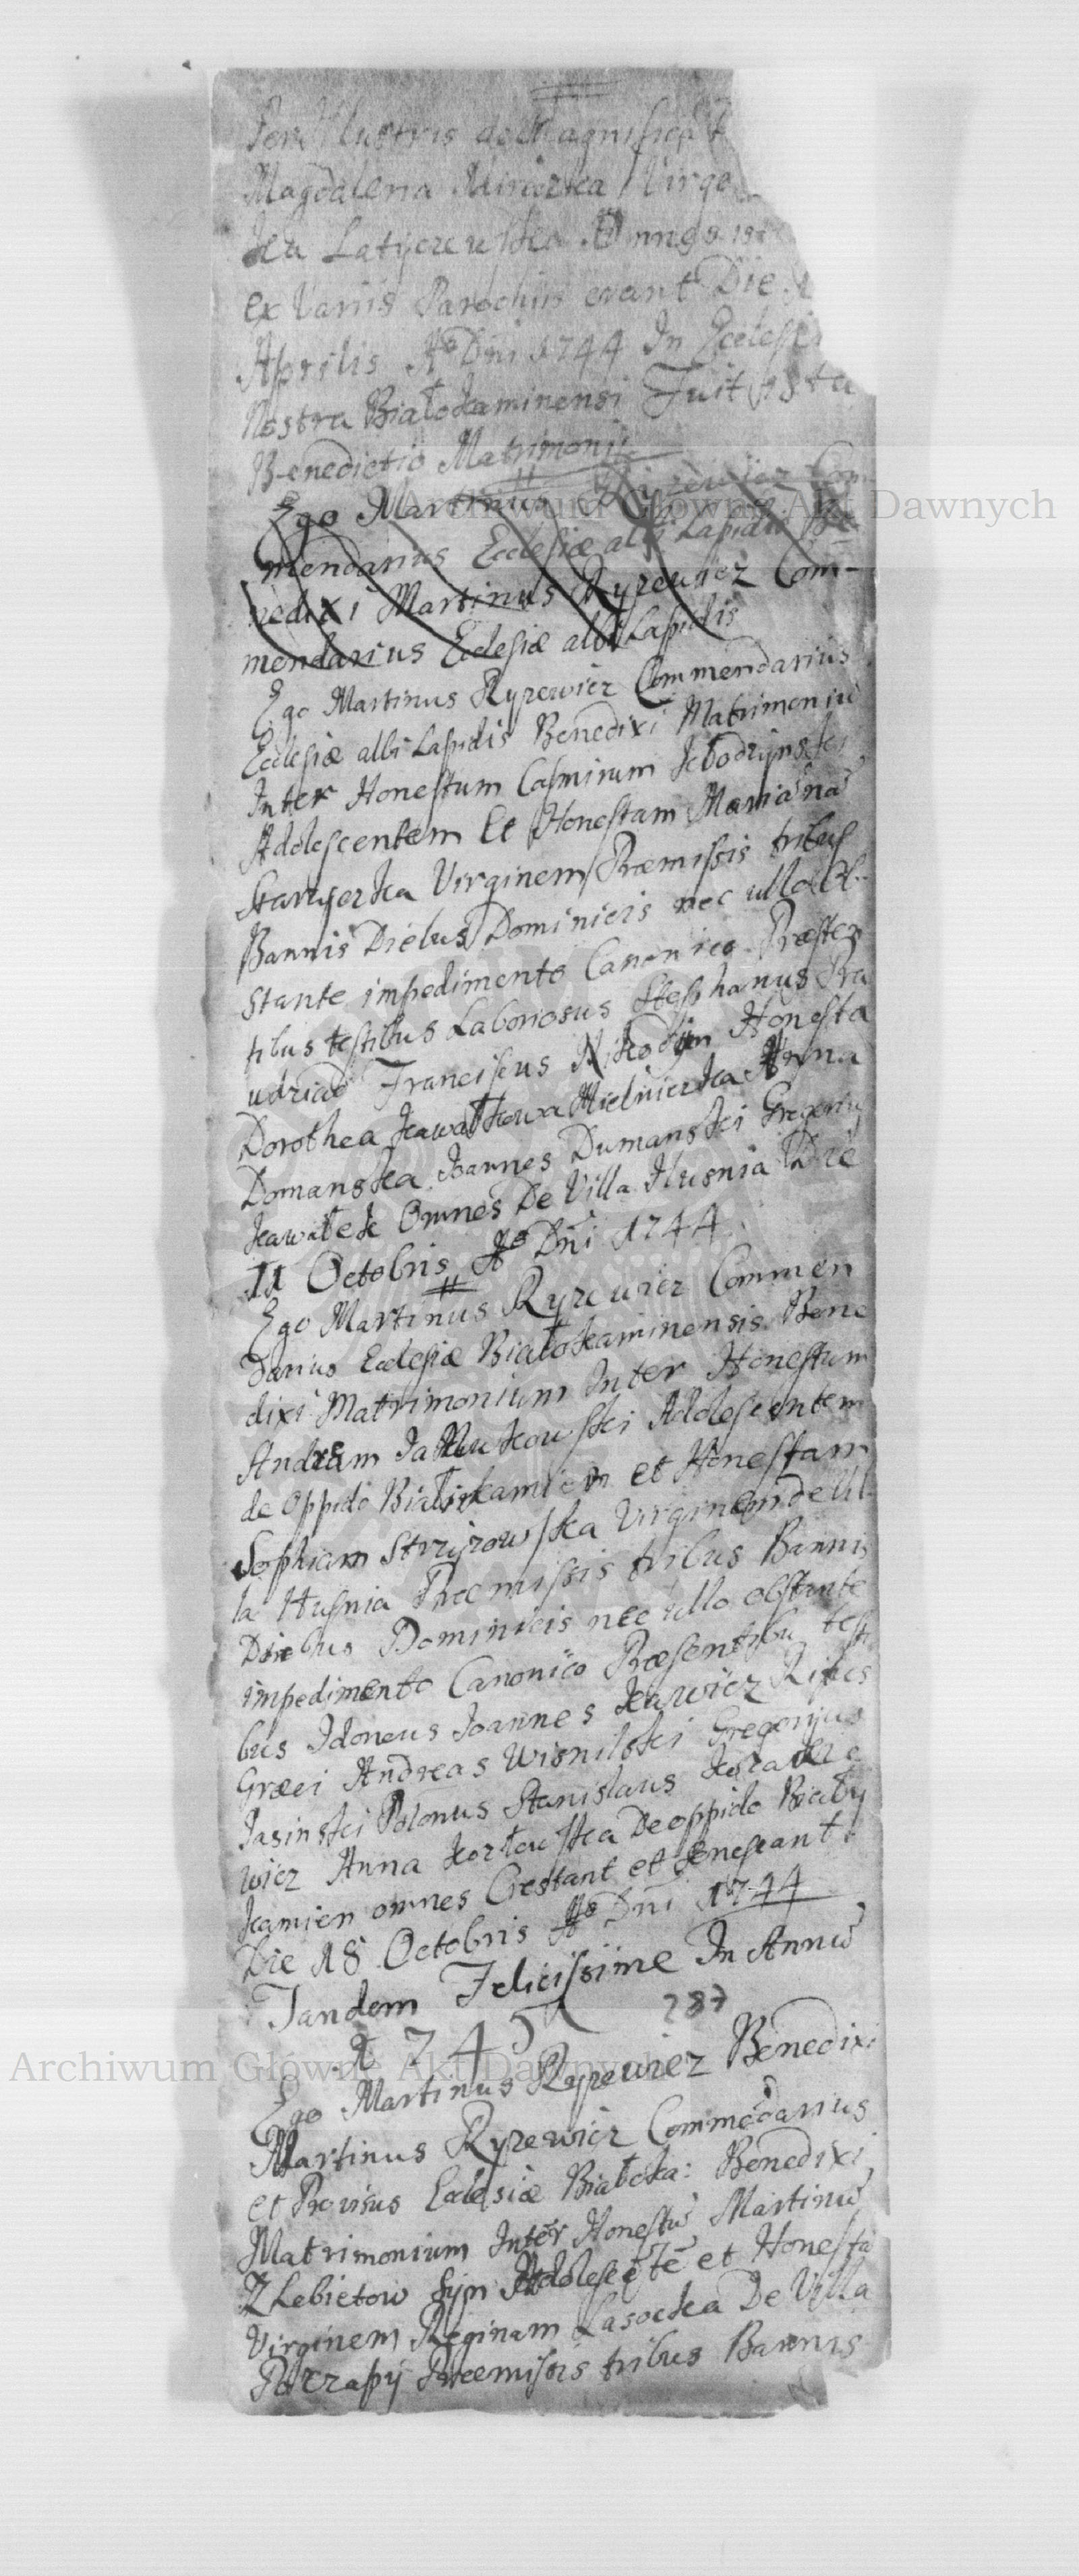 Per Illustris ac Magnifica
Magdalena Mirucka Virgo
ka Latyczewska Omnes
ex Variis Parochiis erant Die
Aprilis Aº Dni 1744 In Ecclesia
Nostra Białokaminensi Fuit ista
Benedictio Matrimonij
Ego Martinus Ryzewicz Com-
mendarius Ecclesiæ albi Lapidis Be-
nedixi Martinus Ryzewicz Com-
mendarius Ecclesiæ albi Lapidis
Ego Martinus Ryzewicz Commendarius
Ecclesiæ albi Lapidis Benedixi Matrimoniū
Inter Honestum Casmirum
Adolescentem Et Honestam Mariānā
Virginem Præmissis tribus
Bannis Diebus Dominicis nec ullo Ob-
stante impedimento Canonico Præsten
tibus testibus Laboriosus Stephanus
Franciscus Nikodym Honesta
Dorothea Kawałkowa Mielniczka Anna
Domanska Joannes Dumanski Gregoriy
Kawałek Omnes De Villa Husnia Die
11 Octobris Aº Dni 1744
Ego Martinus Ryzewicz Commen
darius Ecclesiæ Białokaminensis Bene
dixi Matrimonium Inter Honestum
Andream Adolescentem
de Oppido et Honestam
Sophiam Stryzowska Virginem de Vil
la Husnia Præmissis tribus Bannis
Diebus Dominicis nec ullo obstante
impedimento Canonico Præsentibu testi
bus Idoneus Joannes Kawicz Ritus
Græci Andreas Wisnilski Gregorjus
Jasinski Polonus Stanislaus
wicz Anna Kozłowska De oppido Biały
kamien omnes Crestant et
Die 18 Octobris Aº Dni 1744
Tandem Felicissime In Annū
1745
287
Ego Martinus Ryzewicz Benedixi
Martinus Ryzewicz Commēdarius
et Provisus Ecclesiæ Białoka: Benedixi
Matrimonium Inter Honestū Martinū
Zlebietow Syn Adolescētē et Honestā
Virginem Reginam Lasocka De Villa
Poczapy Præmissis tribus Bannis
Archiwum Główne Akt Dawnych
Archiwum Główne Akt Dawnych